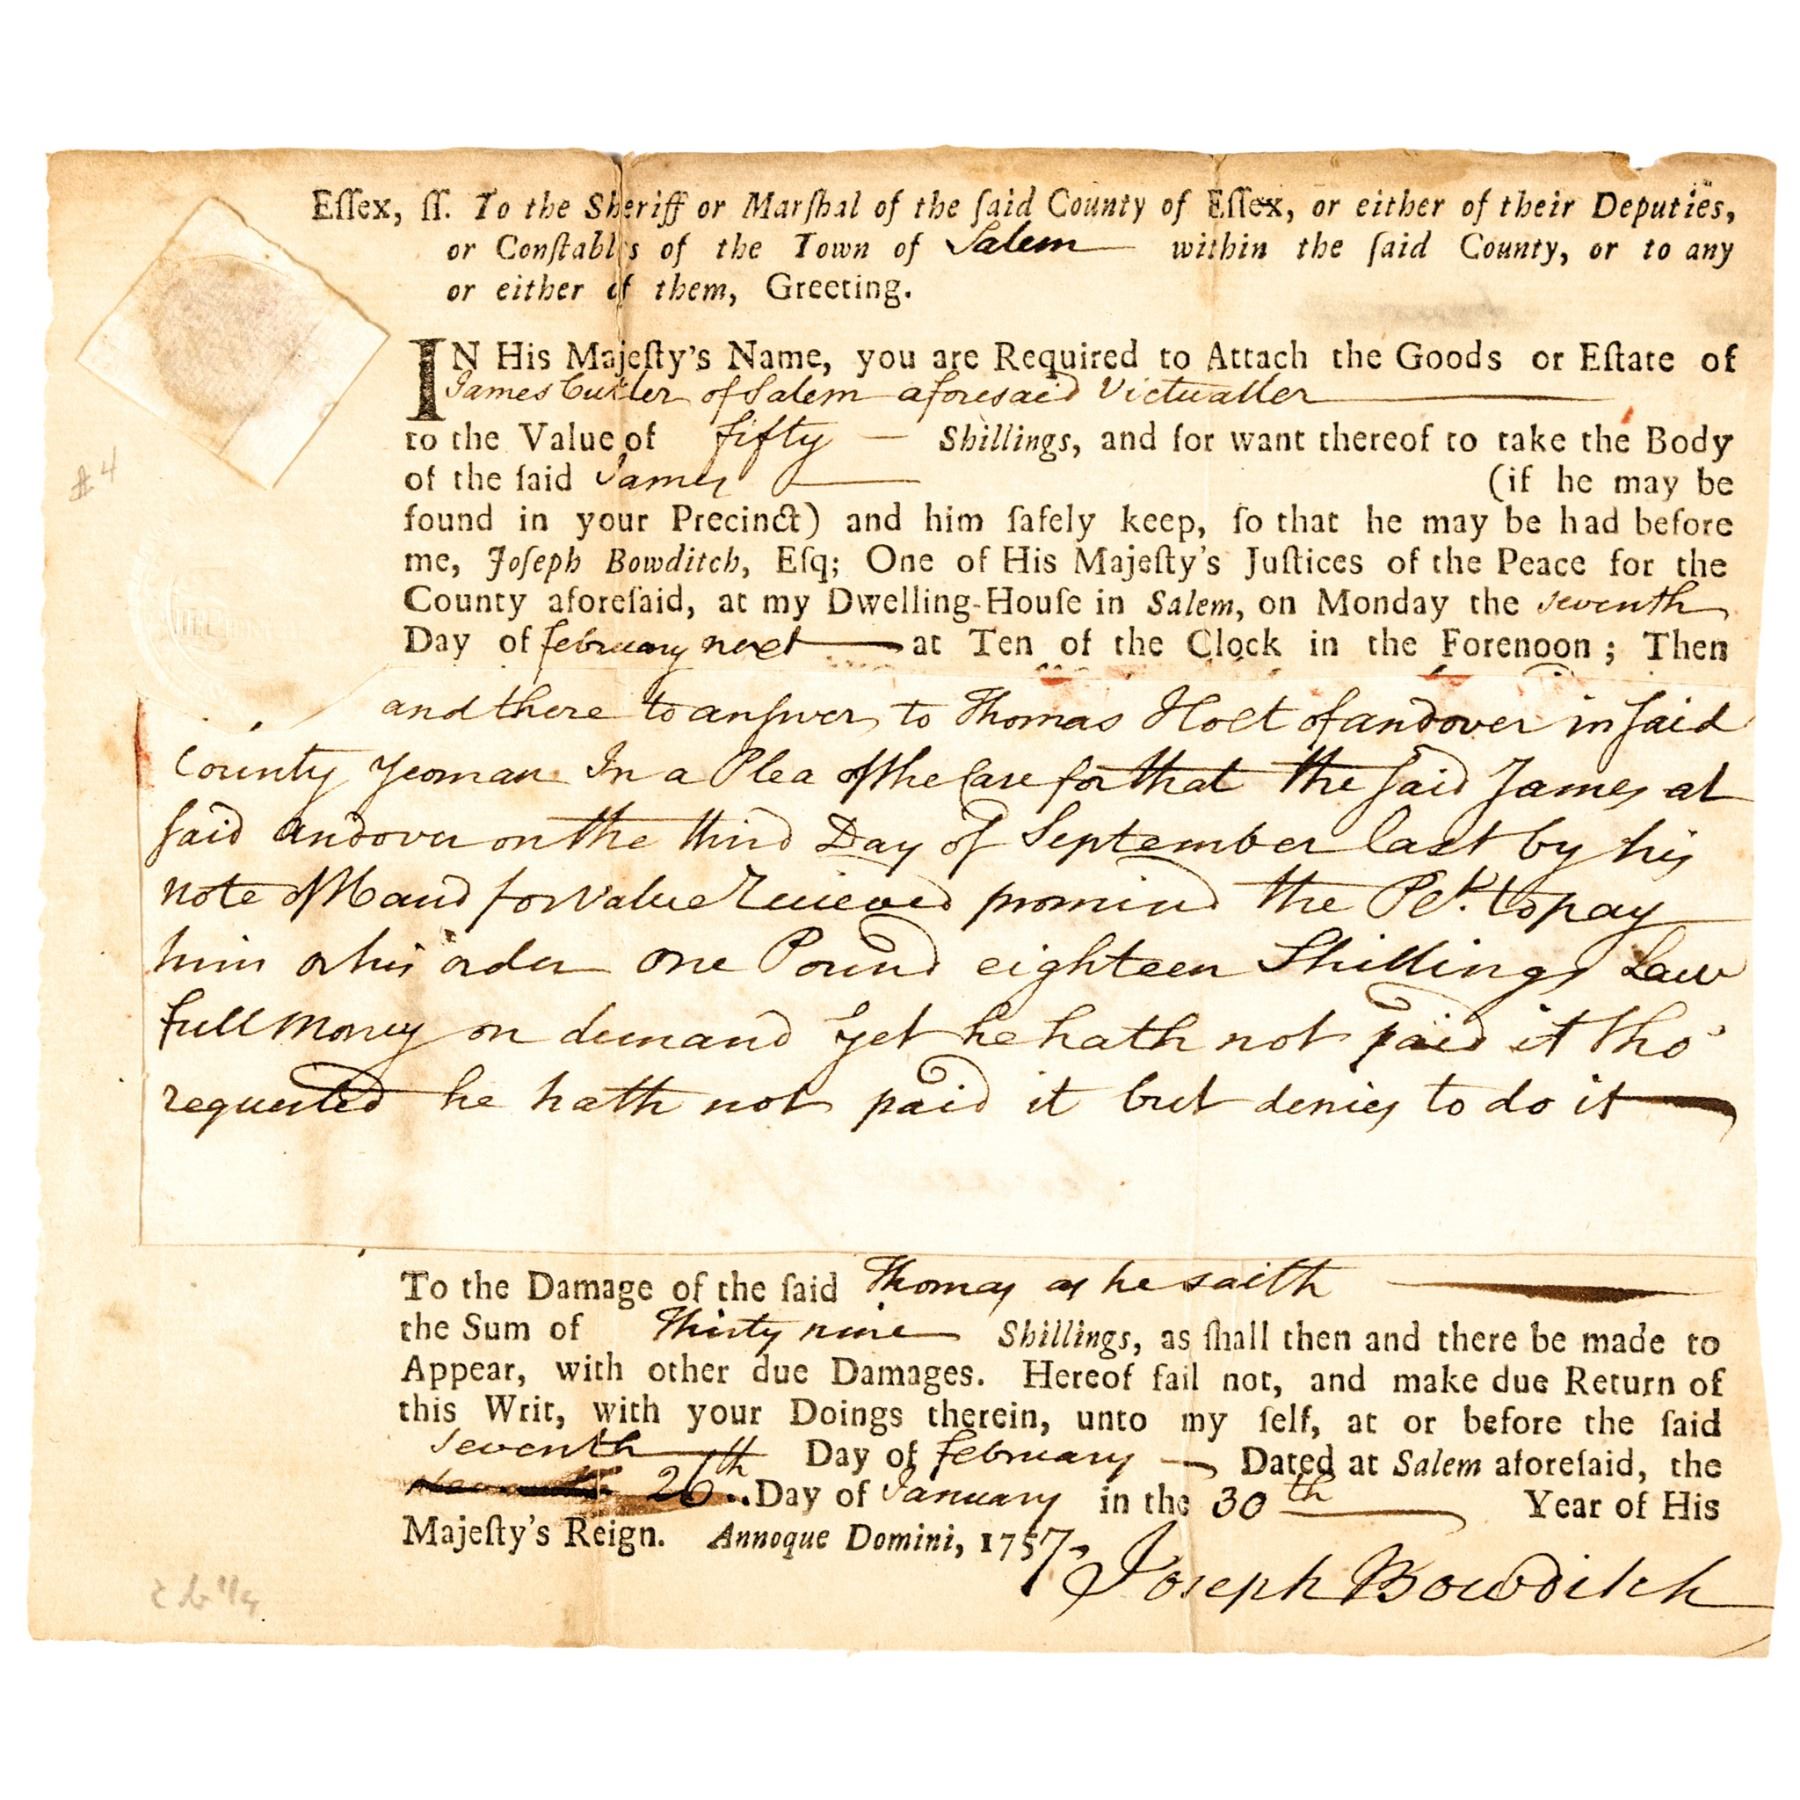 Eſſex, ſſ. To the Sheriff or Marſhal of the ſaid County of Eſſex, or either of their Deputies,
or Conſtables of the Town of Salem within the ſaid County, or to any
or either of them, Greeting.
IN His Majeſty's Name, you are Required to Attach the Goods or Eſtate of
James Cutler of Salem aforesaid Victualler
to the Value of fifty — Shillings, and for want thereof to take the Body
of the ſaid James (if he may be
found in your Precinct) and him ſafely keep, ſo that he may be had before
me, Joſeph Bowditch, Eſq; One of His Majeſty's Juſtices of the Peace for the
County aforeſaid, at my Dwelling-Houſe in Salem, on Monday the seventh
Day of february next at Ten of the Clock in the Forenoon; Then
and there to anſwer to Thomas Holt of andover in ſaid
County Yeoman In a Plea of the Case for that the ſaid James at
ſaid andover on the third Day of September last by his
note of Hand for Value Recieved promised the Pet. to pay
him or his order one Pound eighteen Shillings Law
full money on demand yet he hath not paid it tho'
requested he hath not paid it but denies to do it
To the Damage of the ſaid Thomas as he saith
the Sum of Thirty nine Shillings, as ſhall then and there be made to
Appear, with other due Damages. Hereof fail not, and make due Return of
this Writ, with your Doings therein, unto my ſelf, at or before the ſaid
seventh Day of february — Dated at Salem aforeſaid, the
26th Day of January in the 30th Year of His
Majeſty's Reign. Annoque Domini, 1757.
Joseph Bowditch
#4